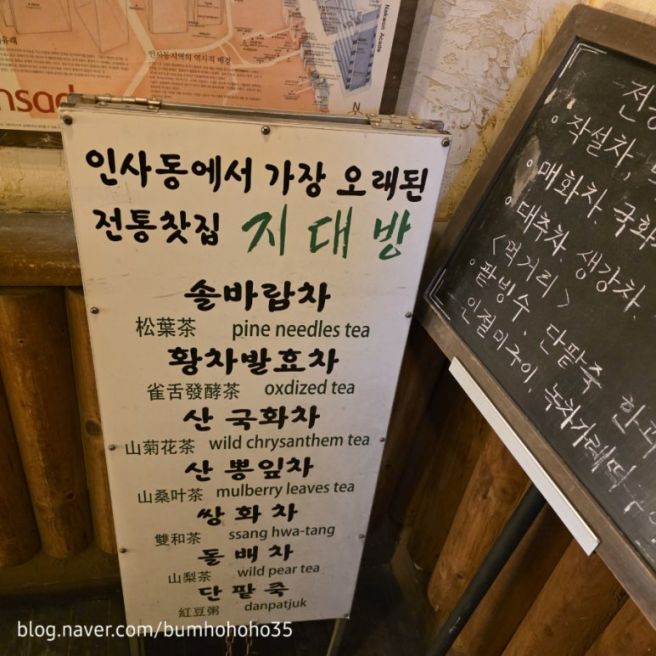 인사동지역의 역사적 배경
nsad
N
인사동에서 가장 오래된
전통찻집 지대방
솔바람차
松葉茶 pine needles tea
황차발효차
雀舌發酵茶 oxdized tea
산 국화차
山菊花茶 wild chrysanthem tea
산 뽕잎차
山桑叶茶 mulberry leaves tea
쌍화차
雙和茶 ssang hwa-tang
돌배차
山梨茶 wild pear tea
단팥죽
紅豆粥 danpatjuk
전
• 작설차,
• 매화차, 국화
• 대추차, 생강차,
<먹거리>
• 팥빙수, 단팥죽, 한과
인절미구이, 녹차가래떡구이
blog.naver.com/bumhohoho35